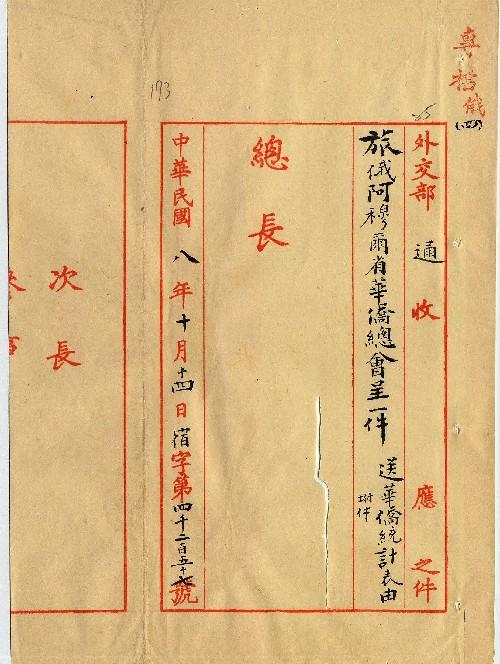 專檔俄
外交部 通 收 應 之件
旅俄阿穆爾省華僑總會呈一件 送華僑統計表由
附件
總長
中華民國 八 年 十 月 十四 日 宿 字第 四千二百五十七 號
193
次長